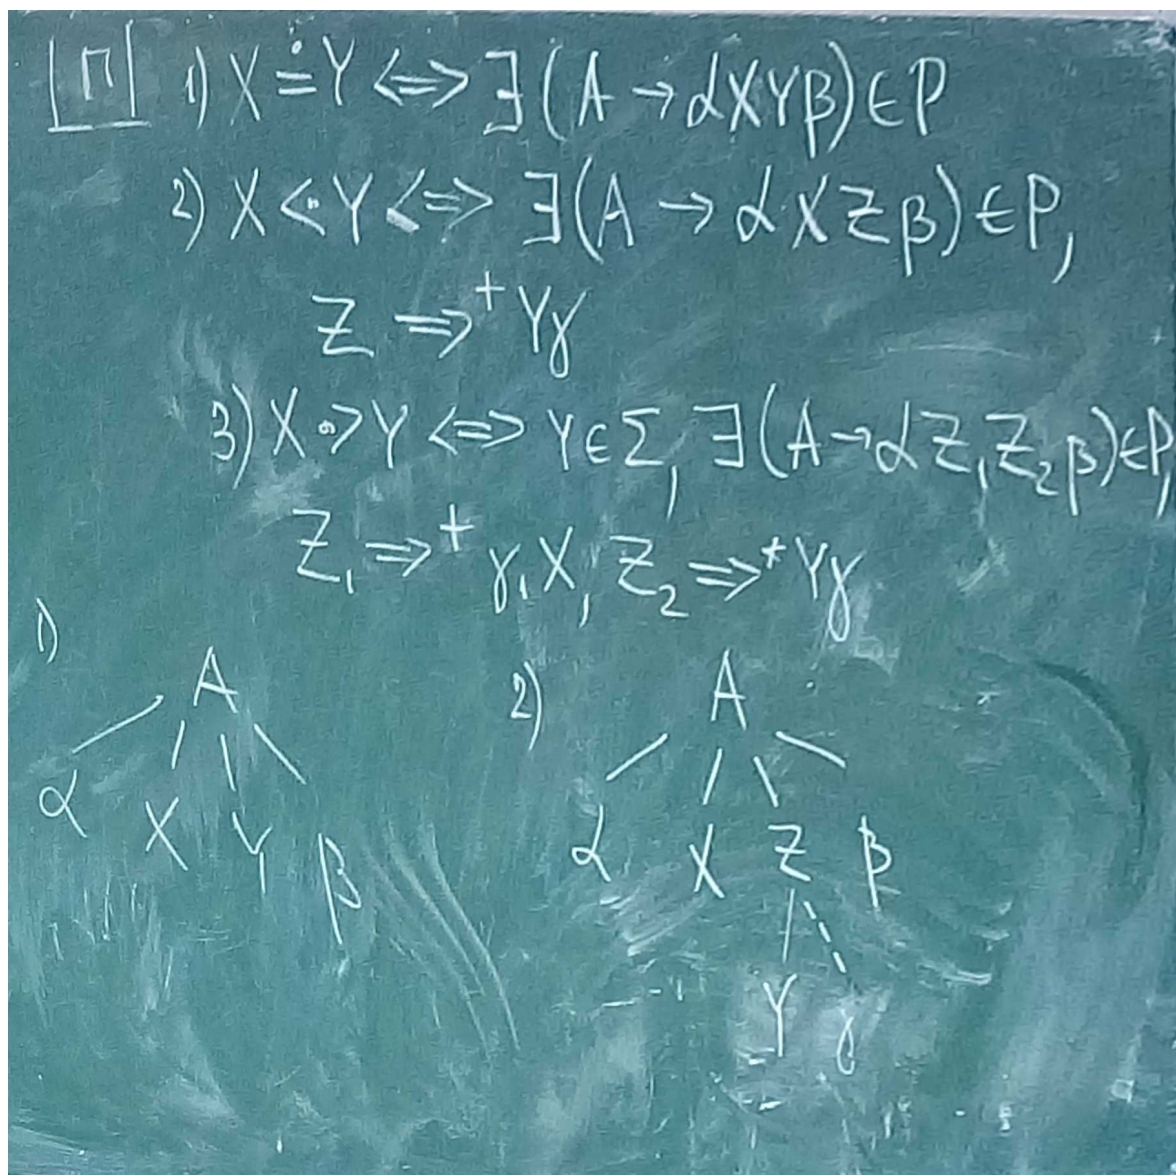 П 1) X ≐ Y <=> ∃(A → αXYβ) ∈ P
2) X <· Y <=> ∃(A → αXZβ) ∈ P,
Z =>⁺ Yγ
3) X ·> Y <=> Y ∈ Σ, ∃(A → αZ₁Z₂β) ∈ P,
Z₁ =>⁺ γ₁X, Z₂ =>* Yγ
1) A
α X Y β
2) A
α X Z β
Y γ